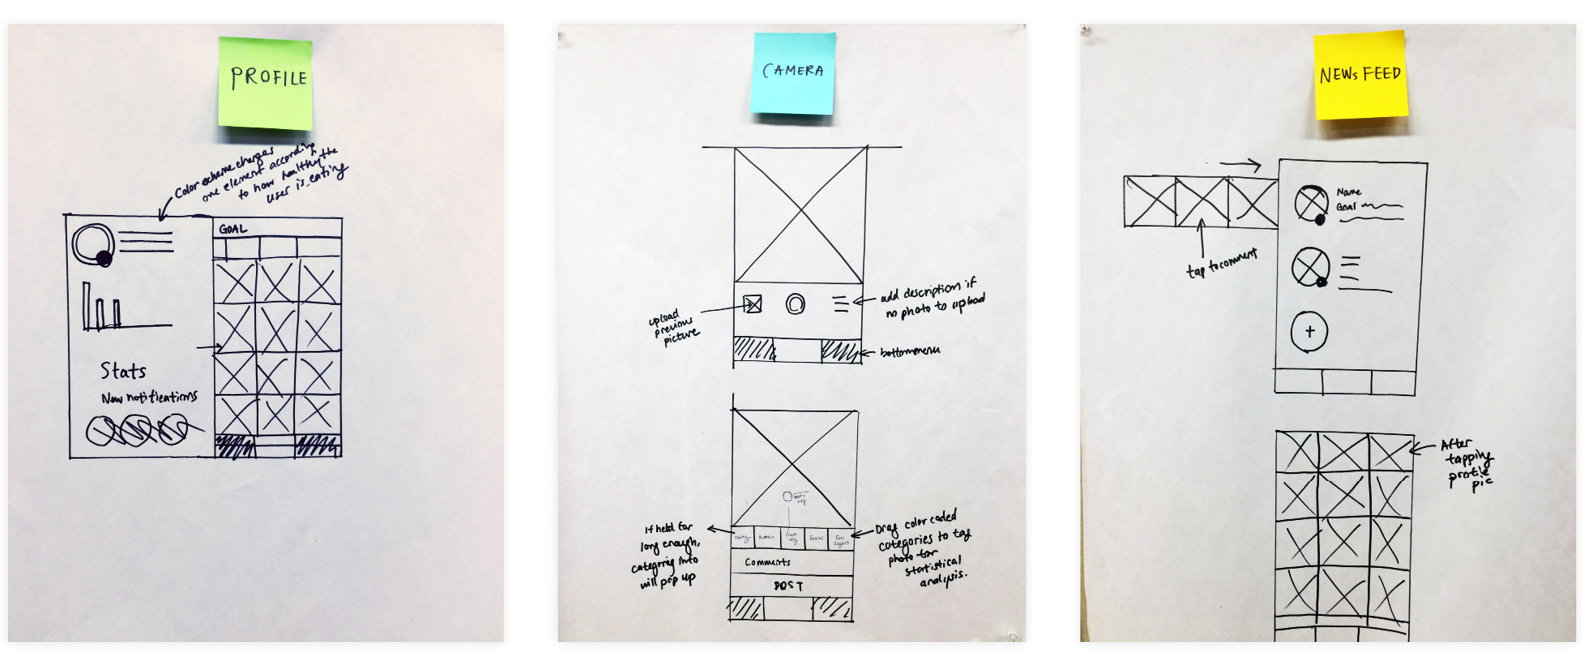 PROFILE
Color scheme changes
one element according
to how healthy the
user is eating
GOAL
Stats
New notifications
CAMERA
upload
previous
picture
add description if
no photo to upload
bottom menu
If held for
long enough,
categories info
will pop up
Dairy
Protein
Fruit
veg
Grains
Fats
sugars
Drag color coded
categories to tag
photo for
statistical
analysis.
Comments
POST
NEWS FEED
Name
Goal
tap to comment
+
After
tapping
profile
pic